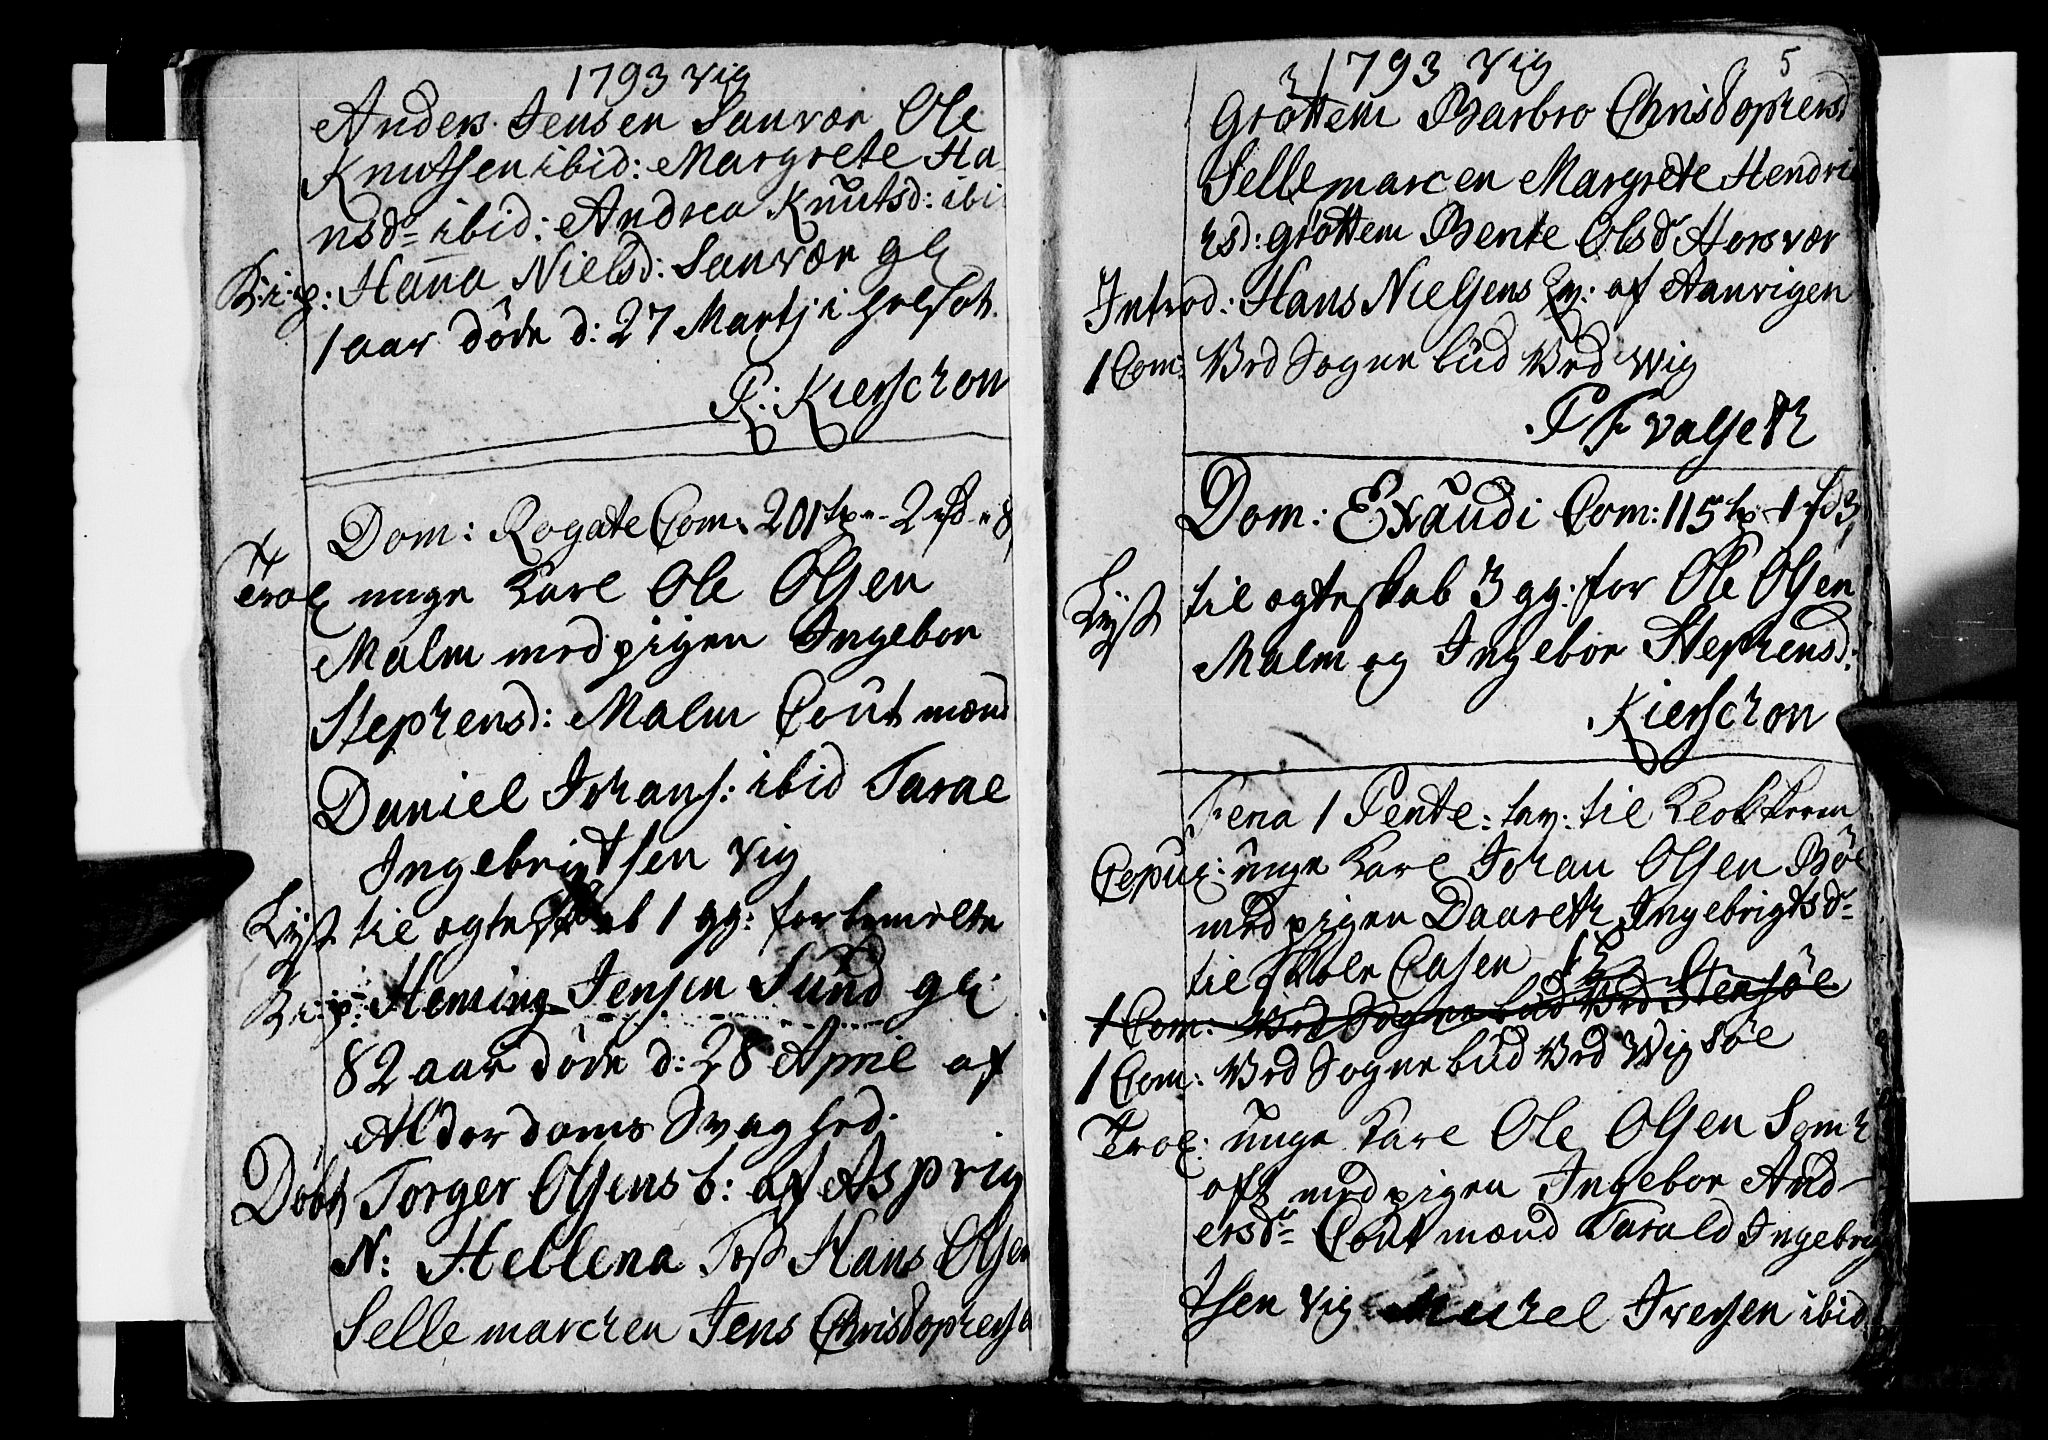 1793 Vig
Anders Jensen Sanvær Ole
Knutsen ibid: Margrete Ha-
nsd= ibid: Andrea Knutsd: ibi
B: i: p: Hanna Nielsd: Sanvær gl
1 aar døde d: 27 Martj i
P: Kierschon
Dom: Rogate Com: 201
Trol unge Karl Ole Olsen
Malm med pigen Ingebor
Stephensd: Malm Cout mænd
Daniel Johans: ibid Taral
Ingebrigtsen Vig
Lyst til ægteskab 1 gg: for bemelte
B: i: p: Heming Jensen Sund gl:
82 aar døde d: 28 April af
Alderdoms Svaghed.
Døbt Torger Olsens b: af Aspvig
N: Hellena Test Hans Olsen
Sellemarchen Jens Christophersen
1793 Vig
5
Grøttem Barbro Christophersd
Sellemarcen Margrete Hendri
chsd: Grøttem Bente Olsd Horsvær
Introd: Hans Nielsens Qv: af Aanvigen
1 Com: Ved Sognebud Ved Wig
Hvalseth
Dom: Exaudi Com: 115
Lyst til ægteskab 3 gg: for Ole Olsen
Malm og Ingebor Stephensd:
Kierschon
Fena 1 Pente: tav: til Klokkeren
Copul: unge Karl Johan Olsen Bøe
med pigen Daareth Ingebrigtsd=
til
1 Com: Ved Sognebud Ved Stensøe
1 Com: Ved Sognebud Ved Vigsøe
Trol: unge Karl Ole Olsen Somh
oft med pigen Ingebor And-
ersd= Cout mænd Tarald Ingebrig
tsen Vig Michel Iversen ibid